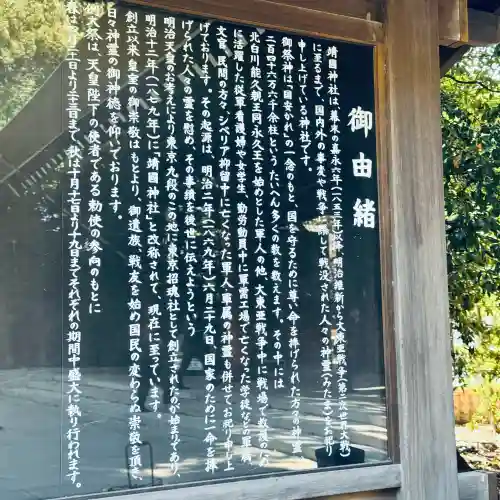 御由緒
靖國神社は、幕末の嘉永六年(一八五三年)以降、明治維新から大東亜戦争(第二次世界大戦)
に至るまで、国内外の事変や戦争に際して戦没された人々の神霊(みたま)をお祀り
申し上げている神社です。
御祭神は「国安かれ」の一念のもと、国を守るために尊い命を捧げられた方々の神霊
二百四十六万六千余柱というたいへん多くの数を数えます。その中には
北白川能久親王 永久王を始めとした軍人の他、大東亜戦争中に戦場で救護のため
に活躍した従軍看護婦や女学生、勤労動員中に軍需工場で亡くなった学徒などの軍属
文官、民間の方々、シベリア抑留中に亡くなった軍人・軍属の神霊も併せてお祀り申し上
げております。その起源は、明治二年(一八六九年)六月二十九日、国家のために一命を捧
げられた人々の霊を慰め、その事績を後世に伝えようという
明治天皇のお考えにより東京九段のこの地に東京招魂社として創立されたのが始まりであり、
明治十二年(一八七九年)に「靖國神社」と改称されて、現在に至っています。
創立以来、皇室の御崇敬はもとより、御遺族、戦友を始め国民の変わらぬ崇敬を頂き、
日々神霊の御神徳を仰いでおります。
例大祭は、天皇陛下のお使者である勅使の参向のもとに
春は 二十一日より二十三日まで、秋は十月十七日より十九日までそれぞれの期間中盛大に執り行われます。